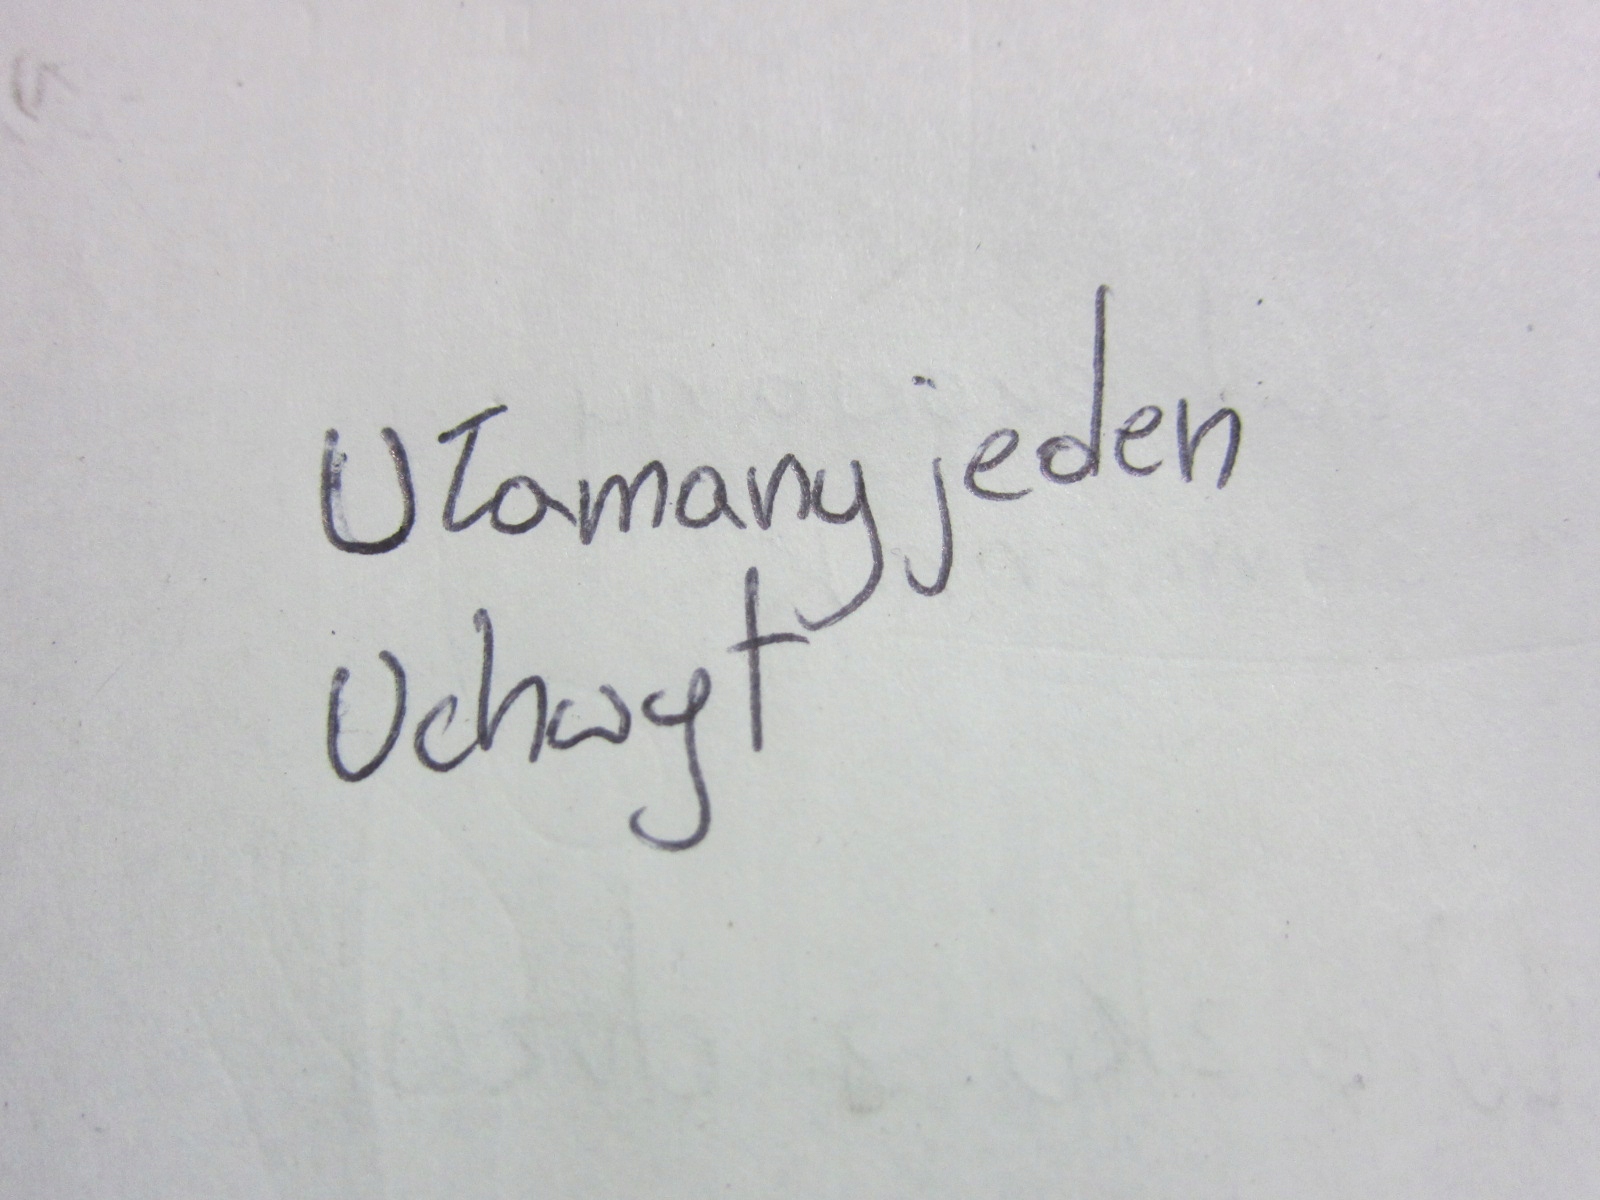 Ułamany jeden
Uchwyt